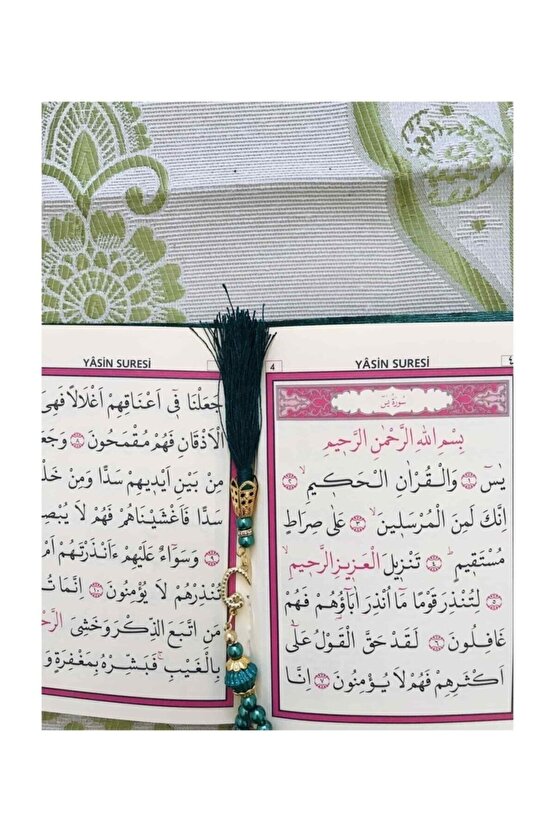 4 YÂSİN SURESİ ٤
سُورَةُ يٰسٓ
بِسْمِ اللّٰهِ الرَّحْمٰنِ الرَّحِيمِ
يٰسٓ ﴿١﴾ وَالْقُرْاٰنِ الْحَكِيمِ ﴿٢﴾
اِنَّكَ لَمِنَ الْمُرْسَلِينَ ﴿٣﴾ عَلٰى صِرَاطٍ
مُسْتَقِيمٍ ﴿٤﴾ تَنْزِيلَ الْعَزِيزِ الرَّحِيمِ
﴿٥﴾ لِتُنْذِرَ قَوْمًا مَٓا اُنْذِرَ اٰبَٓاؤُ۬هُمْ فَهُمْ
غَافِلُونَ ﴿٦﴾ لَقَدْ حَقَّ الْقَوْلُ عَلٰٓى
اَكْثَرِهِمْ فَهُمْ لَا يُؤْمِنُونَ ﴿٧﴾ اِنَّا
YÂSİN SURESİ
جَعَلْنَا فِٓي اَعْنَاقِهِمْ اَغْلَالًا فَهِيَ
الْاَذْقَانِ فَهُمْ مُقْمَحُونَ ﴿٨﴾ وَجَعَ
مِنْ بَيْنِ اَيْدِيهِمْ سَدًّا وَمِنْ خَلْ
سَدًّا فَاَغْشَيْنَاهُمْ فَهُمْ لَا يُبْصِ
﴿٩﴾ وَسَوَٓاءٌ عَلَيْهِمْ ءَاَنْذَرْتَهُمْ اَمْ
تُنْذِرْهُمْ لَا يُؤْمِنُونَ ﴿١٠﴾ اِنَّمَا تُ
مَنِ اتَّبَعَ الذِّكْرَ وَخَشِيَ الرَّحْ
بِالْغَيْبِ فَبَشِّرْهُ بِمَغْفِرَةٍ وَ